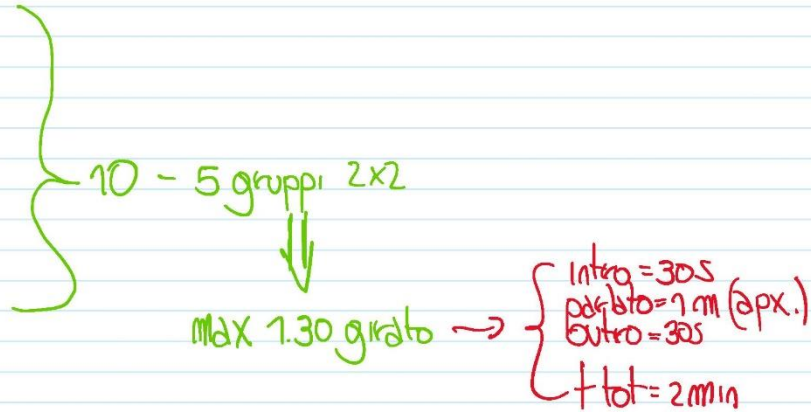 10 - 5 gruppi 2x2
max 1.30 girato → intro = 30s
parlato = 1 m (apx.)
outro = 30s
t tot = 2min